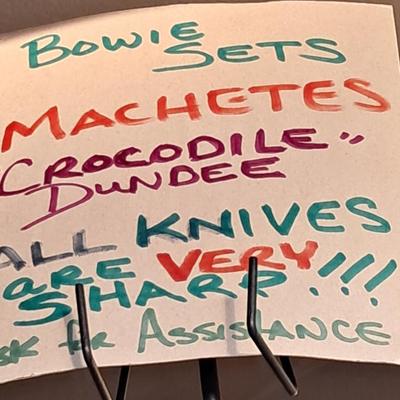 BOWIE
SETS
MACHETES
CROCODILE"
DUNDEE
ALL KNIVES
ARE VERY
SHARP!!!
for ASSISTANCE